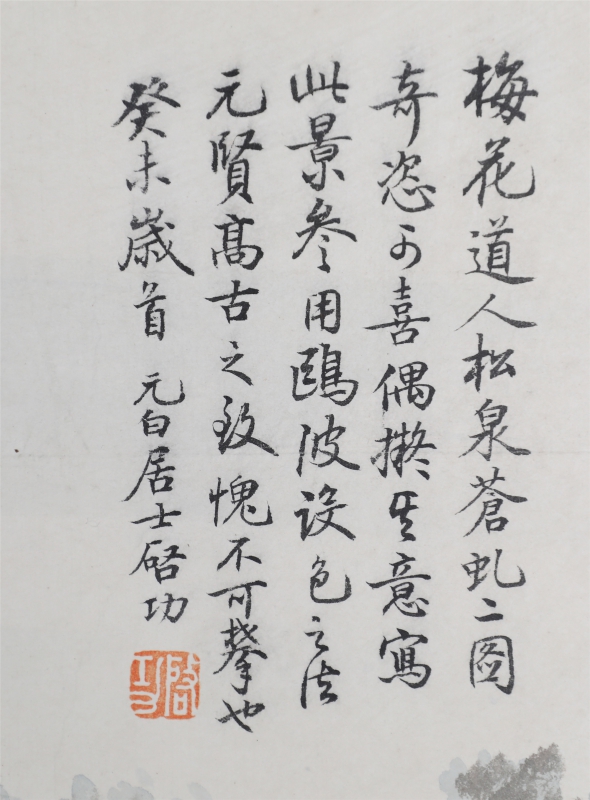 梅花道人松泉蒼虬二圖
奇恣可喜偶擬其意寫
此景參用鷗波設色之法
元賢高古之致愧不可攀也
癸未歲首 元白居士啓功
啟功